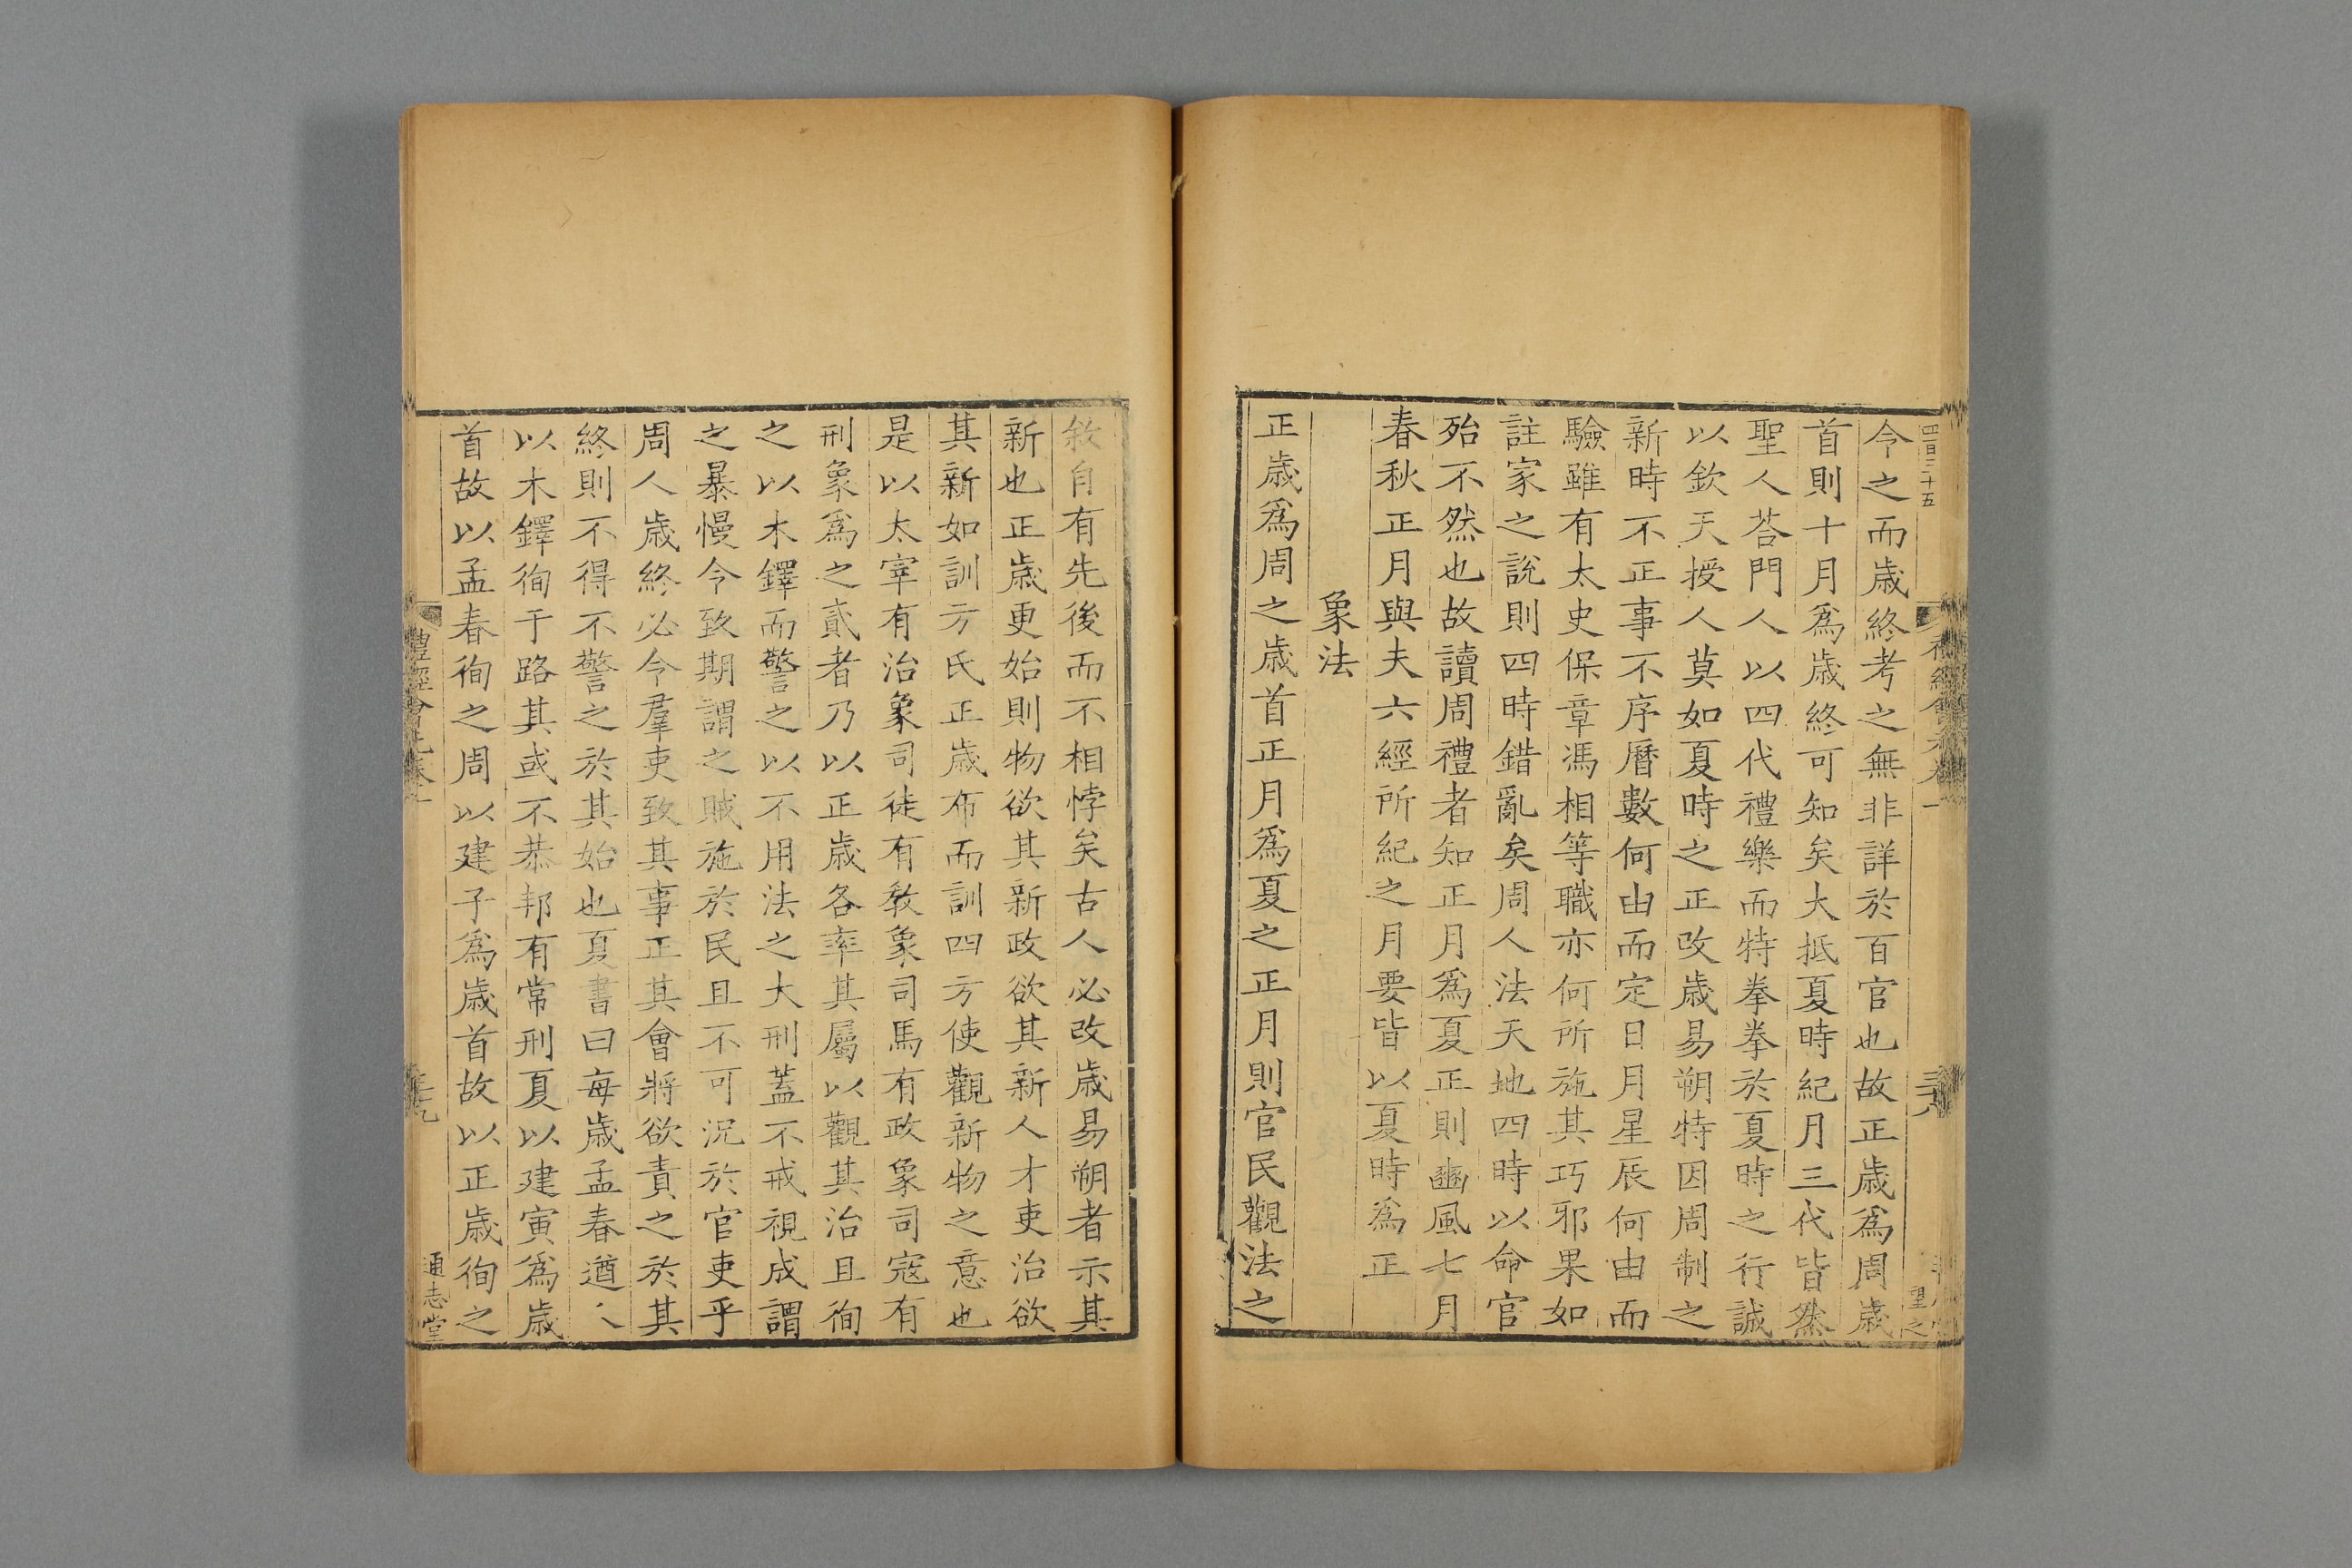 四百三十五
今之而歳終考之無非詳於百官也故正歳爲周歳
首則十月爲歳終可知矣大抵夏時紀月三代皆然
聖人荅門人以四代禮樂而特拳拳於夏時之行誠
以欽天授人莫如夏時之正改歳易朔特因周制之
新時不正事不序曆數何由而定日月星辰何由而
驗雖有太史保章馮相等職亦何所施其巧邪果如
註家之說則四時錯亂矣周人法天地四時以命官
殆不然也故讀周禮者知正月爲夏正則豳風七月
春秋正月與夫六經所紀之月要皆以夏時爲正
象法
正歳爲周之歳首正月爲夏之正月則官民觀法之
敘自有先後而不相悖矣古人必改歳易朔者示其
新也正歳更始則物欲其新政欲其新人才吏治欲
其新如訓方氏正歳布而訓四方使觀新物之意也
是以太宰有治象司徒有敎象司馬有政象司寇有
刑象爲之貳者乃以正歳各率其屬以觀其治且徇
之以木鐸而警之以不用法之大刑蓋不戒視成謂
之暴慢令致期謂之賊施於民且不可況於官吏乎
周人歳終必令羣吏致其事正其會將欲責之於其
終則不得不警之於其始也夏書曰每歳孟春遒人
以木鐸徇于路其或不恭邦有常刑夏以建寅爲歳
首故以孟春徇之周以建子爲歳首故以正歳徇之
禮經會元卷一
三九
通志堂